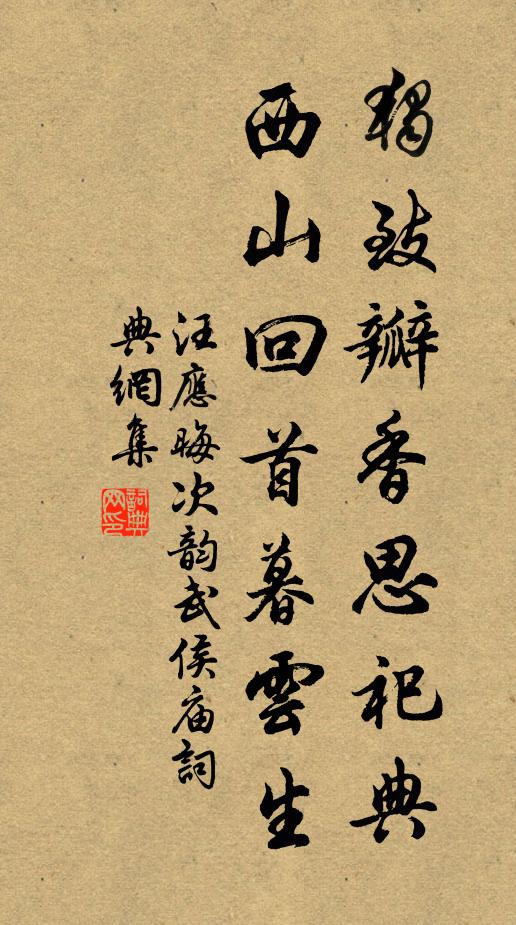 獨致瓣香思祀典
西山回首暮雲生
汪應晦次韵武侯庙詞
典網集
詞典網印